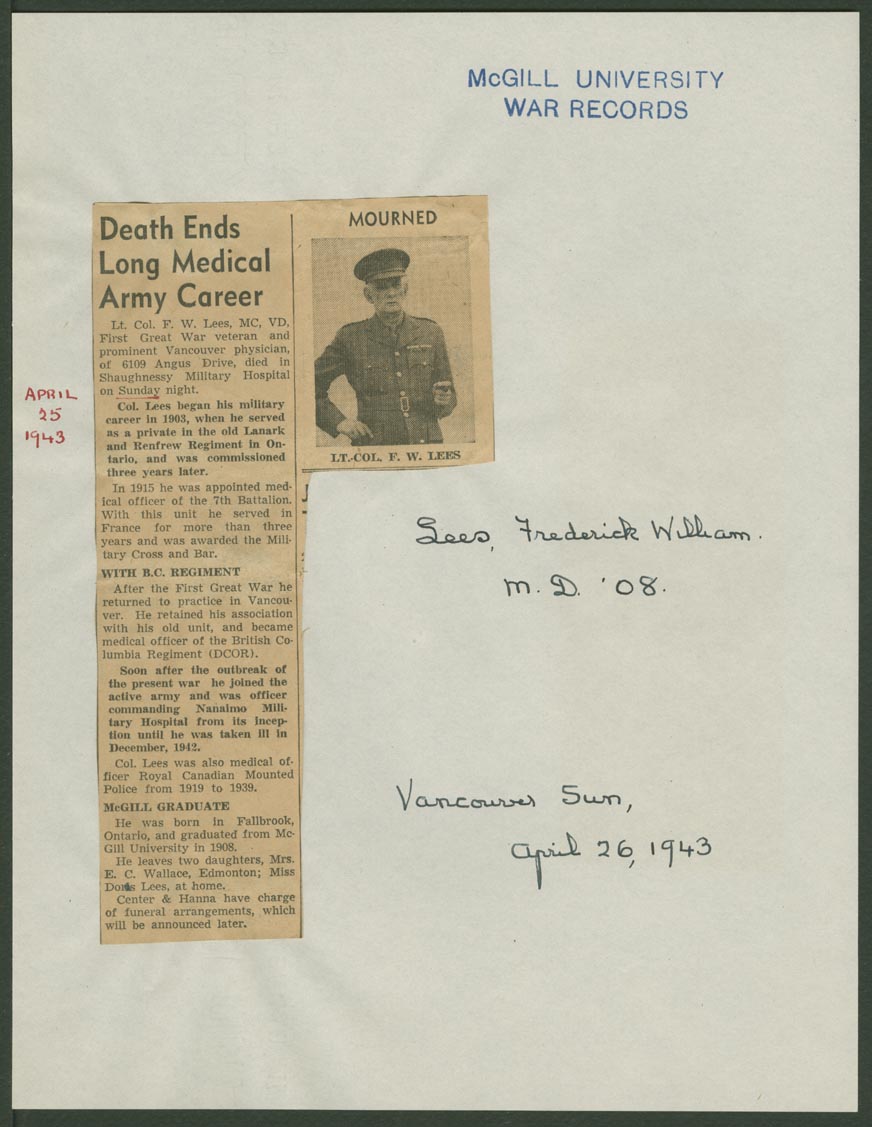 McGILL UNIVERSITY
WAR RECORDS
Death Ends
Long Medical
Army Career
Lt. Col. F. W. Lees, MC, VD,
First Great War veteran and
prominent Vancouver physician,
of 6109 Angus Drive, died in
Shaughnessy Military Hospital
on Sunday night.
APRIL
25
1943
Col. Lees began his military
career in 1903, when he served
as a private in the old Lanark
and Renfrew Regiment in On-
tario, and was commissioned
three years later.
In 1915 he was appointed med-
ical officer of the 7th Battalion.
With this unit he served in
France for more than three
years and was awarded the Mili-
tary Cross and Bar.
WITH B.C. REGIMENT
After the First Great War he
returned to practice in Vancou-
ver. He retained his association
with his old unit, and became
medical officer of the British Co-
lumbia Regiment (DCOR).
Soon after the outbreak of
the present war he joined the
active army and was officer
commanding Nanaimo Mili-
tary Hospital from its incep-
tion until he was taken ill in
December, 1942.
Col. Lees was also medical of-
ficer Royal Canadian Mounted
Police from 1919 to 1939.
McGILL GRADUATE
He was born in Fallbrook,
Ontario, and graduated from Mc-
Gill University in 1908.
He leaves two daughters, Mrs.
E. C. Wallace, Edmonton; Miss
Doris Lees, at home.
Center & Hanna have charge
of funeral arrangements, which
will be announced later.
MOURNED
LT.-COL. F. W. LEES
Lees, Frederick William.
M. D. '08.
Vancouver Sun,
April 26, 1943